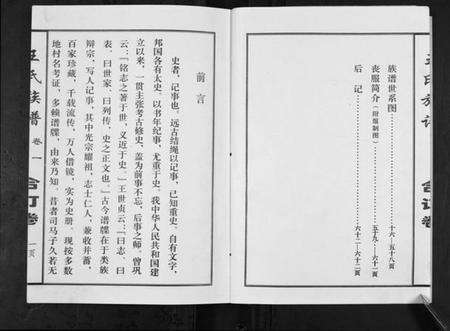 族谱世系图……十六—五十八页
丧服简介（附服制图）……五十九—六十一页
后记……六十二—六十二页
前言
史者，记事也。远古结绳以记事，已知重史，自有文字，
邦国各有太史，以书年纪事，尤重于史。我中华人民共和国建
立以来，一贯主张考古修史，盖为前事不忘，后事之师，曾巩
云：「铭志之著于世，义近于史。」王世贞云：「曰志、曰
表、曰世家、曰列传，史之正文也。」古今谱牒在于类族
辩宗，写人记事，其中光宗耀祖，志士仁人，兼收并蓄，
百家珍藏，千载流传，万人借镜，实为史册。现按多数
地村名考证，多赖谱牒，由来乃知。昔者司马子久若无
王氏族谱
卷一
合订卷
一页